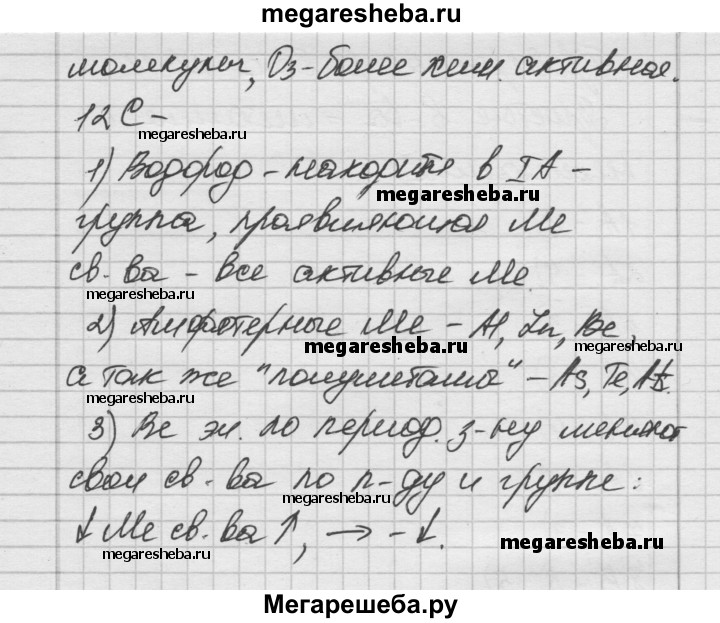 megaresheba.ru
молекулы, O3 - более хим. активная.
12 С -
megaresheba.ru
1) Водород - находится в IA -
megaresheba.ru
группа, проявляющая Ме
св-ва - все активные Ме.
megaresheba.ru
2) Амфотерные Ме - Al, Zn, Be,
megaresheba.ru
а так же "полуметаллы" - As, Te, At.
3) Все эл. по период. з-ну меняют
свои св-ва по п-ду и группе:
megaresheba.ru
↓ Ме св-ва ↑, → - ↓.
megaresheba.ru
megaresheba.ru
Мегарешеба.ру